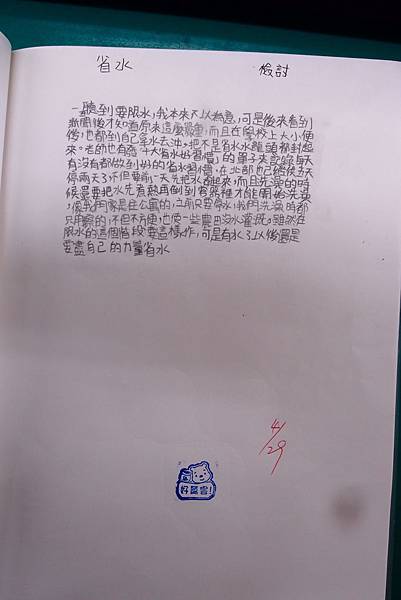 省水 檢討
一聽到要限水,我本來不以為意,可是後來看到
新聞後才知道原來這麼嚴重,而且在學校上大小便
後,也都到自己拿水去沖,把不是省水水龍頭都封起
來。老師也有 「十大省水好習慣」的單子來記錄每天
有沒有都做到好的省水習慣,在北部也已經供五天
停兩天了,不但要前一天先把水 起來,而且洗澡的時
候還要把水先煮熱再倒到 裡才能開始洗澡
,像我們家是住公寓的,之前只要停水,我們洗澡時都
只用 的,不但不方便,也使一些農田沒水灌溉。雖然在
限水的這個階段要這樣作,可是有水了以後還是
要盡自己的力量省水
4/29
好 富!